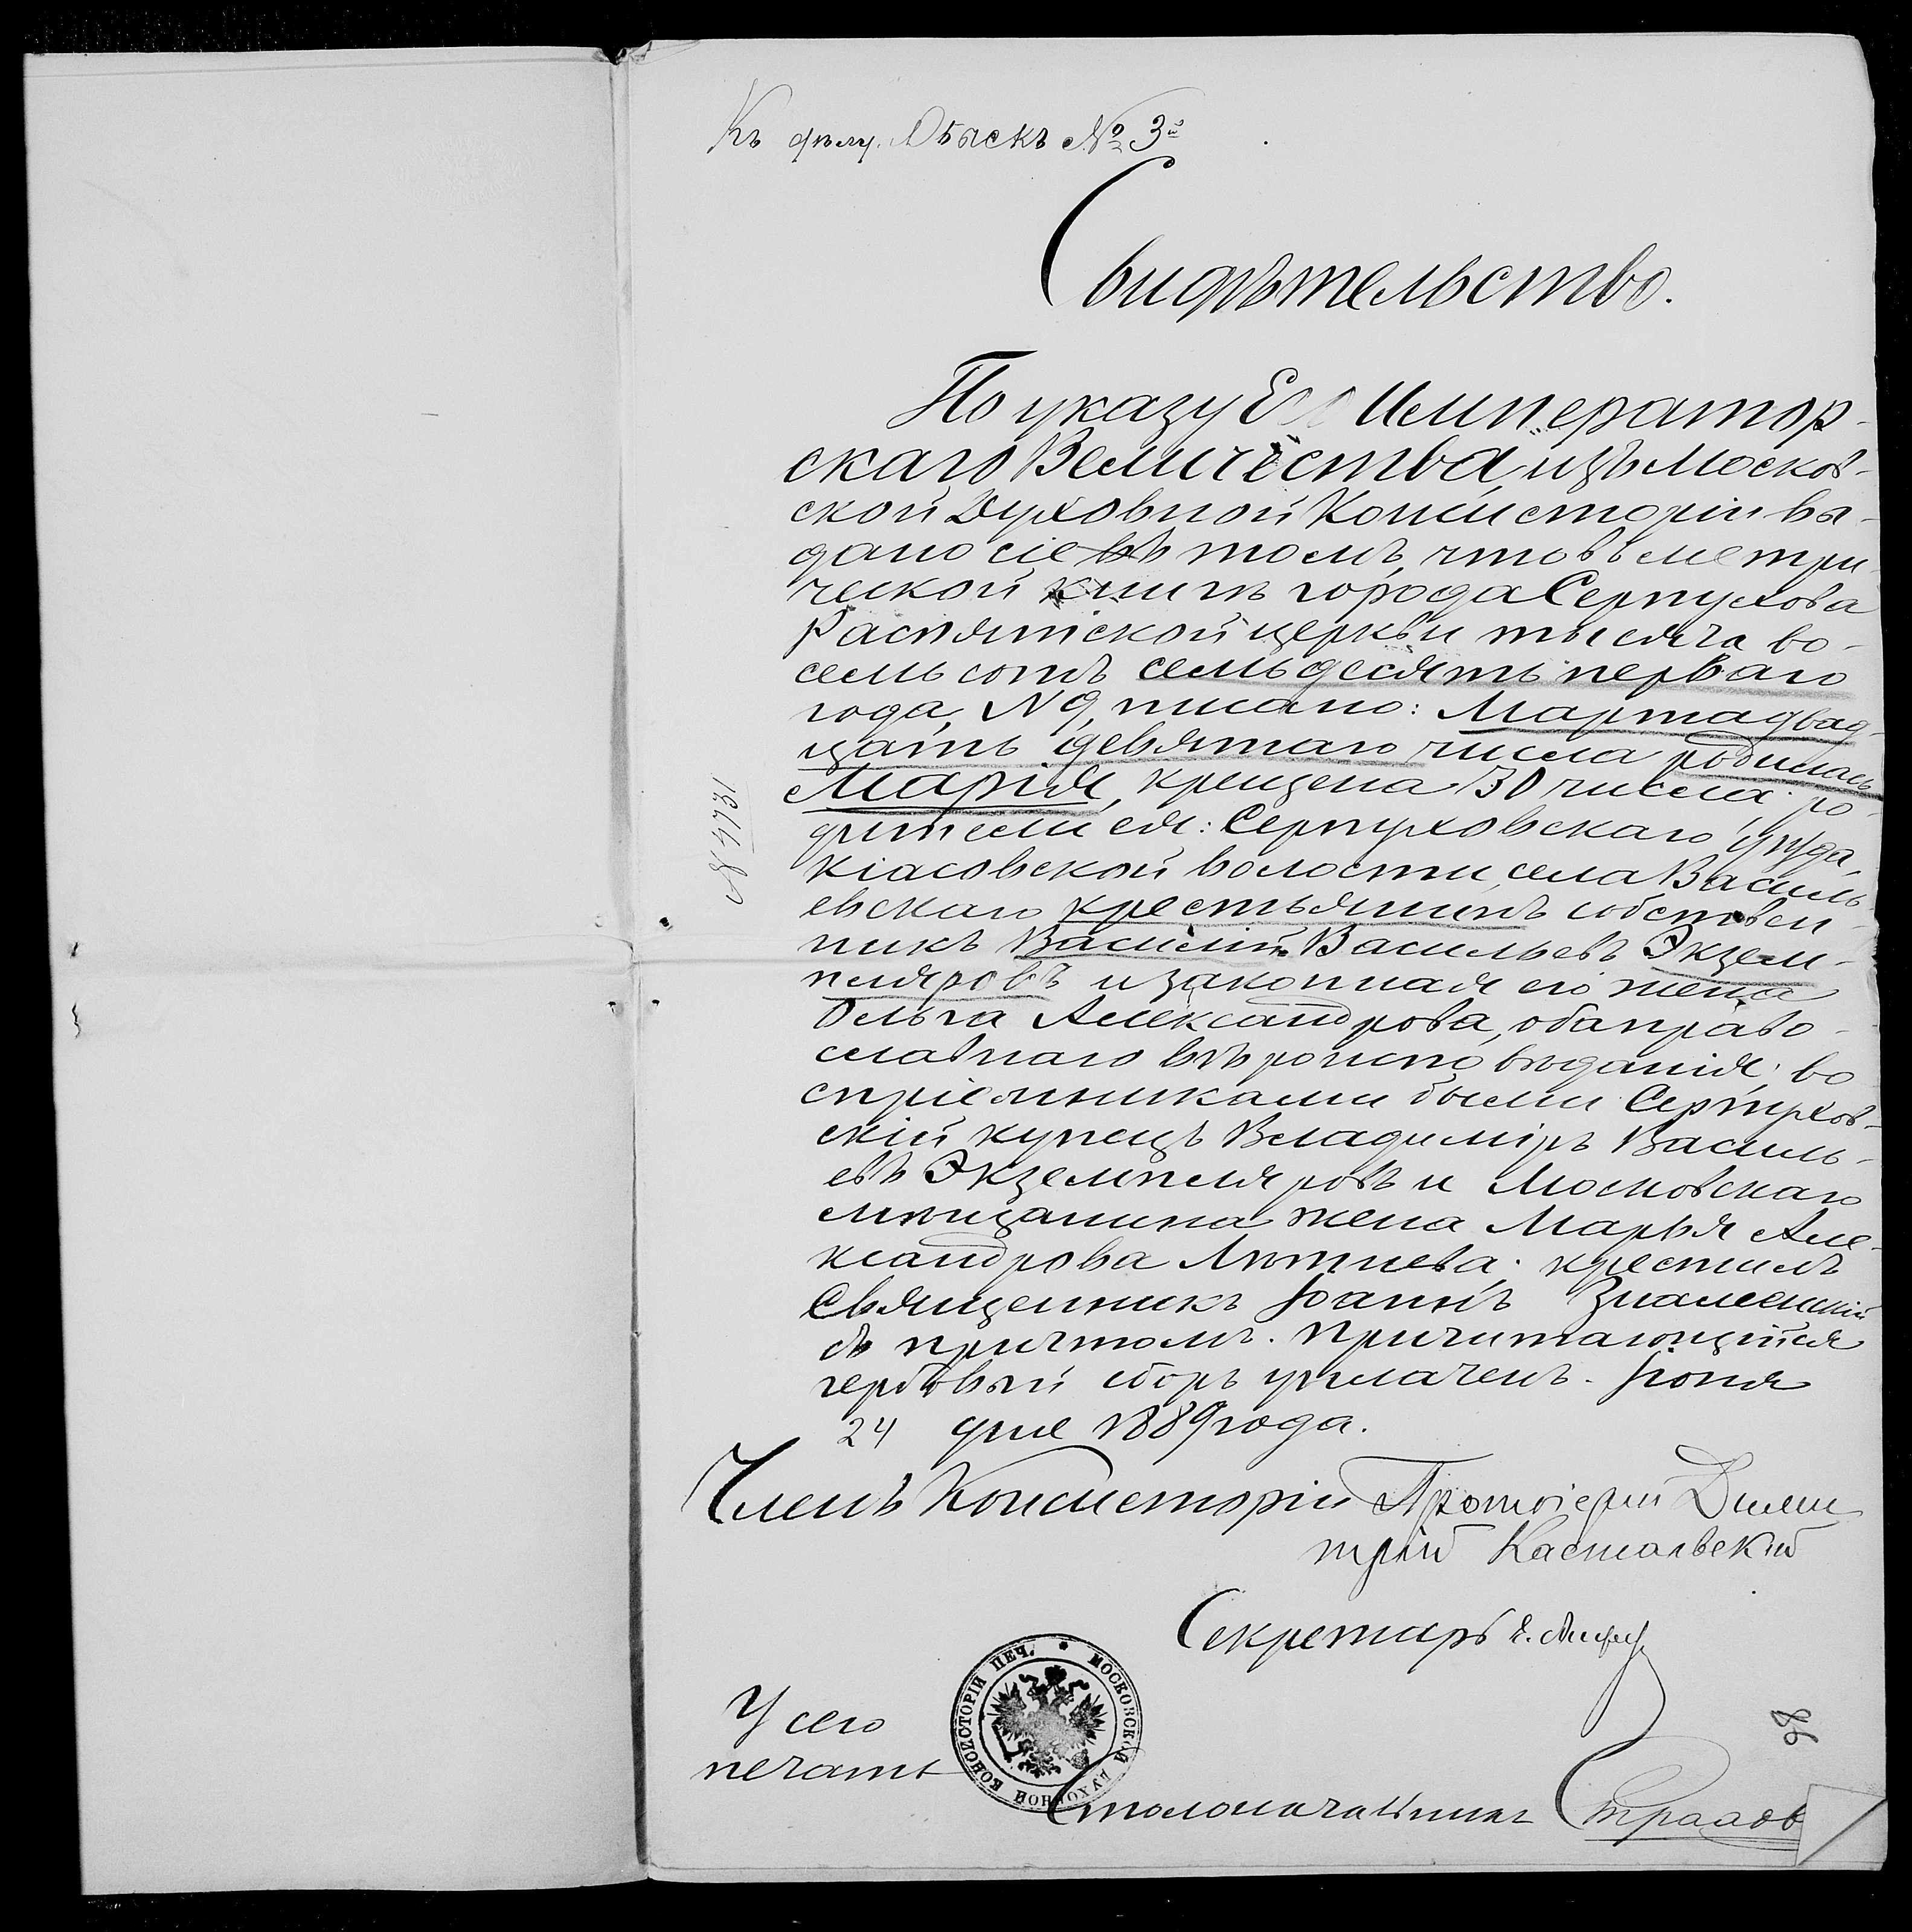 Къ дѣлу. Обыскъ № 3й
Свидѣтельство.
По указу Его Император-
скаго Величества, изъ Москов-
ской Духовной Консисторіи вы-
дано сіе въ томъ, что въ метри-
ческой книгѣ города Серпухова
Распятской церкви тысяча во-
семь сотъ семьдесятъ перваго
года, N 9, писано: Марта двад-
цать девятаго числа родилась
Марія, крещена 30 числа; ро-
дители ея: Серпуховскаго уѣзда,
Кіасовской волости, села Василь-
евскаго крестьянинъ собствен-
никъ Василій Васильевъ Экзем-
пляровъ и законная его жена
Ольга Александрова, оба право-
славнаго вѣроисповѣданія; во
спріемниками были: Серпухов-
скій купецъ Владиміръ Василь-
евъ Экземпляровъ и Московскаго
мѣщанина жена Марья Але-
ксандрова Лютиева; крестилъ
Священникъ Іоаннъ Знаменскій
съ причтомъ. Причитающійся
гербовый сборъ уплаченъ. Іюня
24 дня 1889 года.
N 4731
Членъ Консисторіи Протоіерей Дими
трій Кастальскій
Секретарь
У сего
печать
МОСКОВСКОЙ ДУХОВНОЙ КОНСИСТОРІИ ПЕЧ.
98
Столоначальникъ Страхов